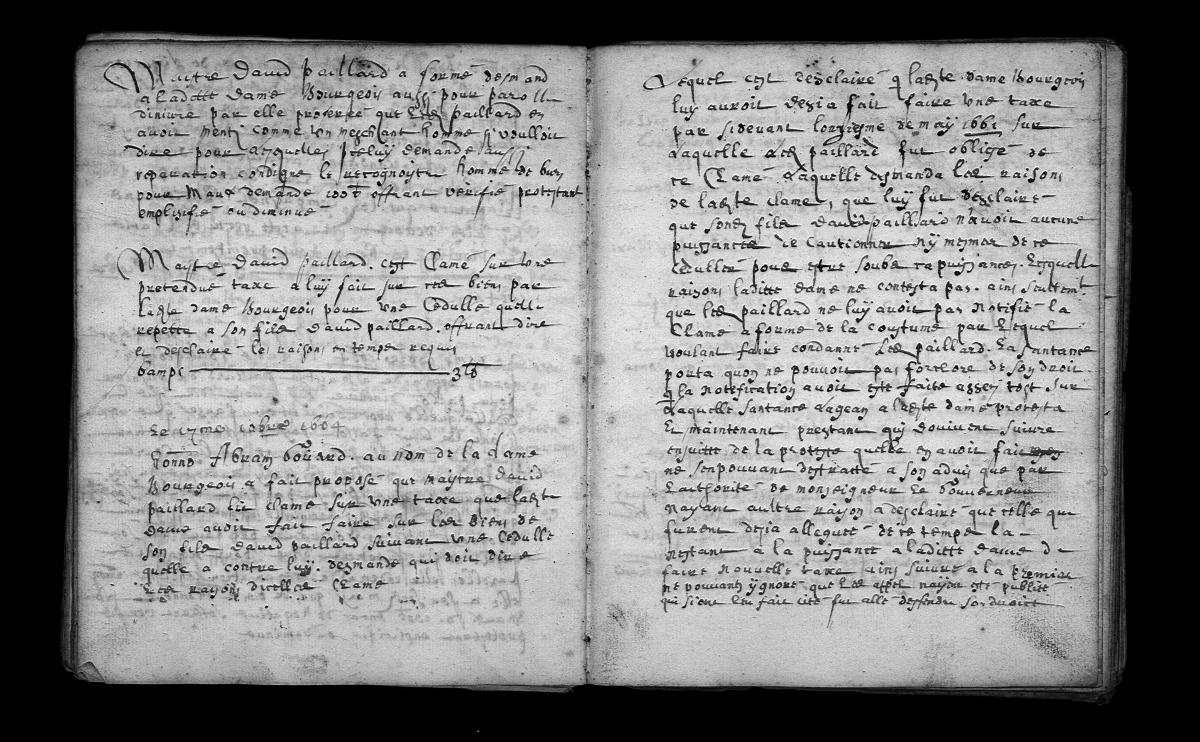 Maistre David paillard a formé demand
a laditte dame Bourgeois aussi pour paroll
diniure par elle proferée que led paillard en
avoit menti comme un meschant homme q voulloit
dire pour lesquelles jceluy demande aussi
reparation condigne le recognoistre homme de bien
pour Maux demande 100 offrant verifié protestant
emplisifié ou diminué
Maistre David paillard. cest Clamé sur une
pretendue taxe a luy fait sur ces biens par
ladte dame Bourgeois pour une Cedulle quelle
repette a son fils David paillard. offrant dire
et desclairé les raisons en temps requis
bamps 3 lb
Le 17me 10bre 1664
honno Abram bouard. au nom de la dame
Bourgeois a fait proposé que maistre David
paillard cest clamé sur une taxe que ladte
dame avoit fait faire sur les biens de
son fils David paillard suivant une Cedulle
quelle a contre luy. demande qui doit dire
les raisons dicelles Clame
Lequel cest desclairé q ladte dame Bourgeois
luy auroit desia fait faire une taxe
par sidevant lonziesme de may 1661 sur
Laquelle Led paillard fut obligé de
ce Clamé Laquelle demanda les raisons
de ladte clame, que luy fut desclairé
que sond fils David paillard n'avoit aucune
puissance de Cautionner ny mesmes de ce
Ceduller pour estre soubs sa puissances. Lesquelle
raisons laditte dame ne contesta pas. ains seulemt
que led paillard ne luy avoit pas notifié la
Clame a forme de la coustume par Lequel
voulant faire condanné Led paillard. La santance
porta quon ne pouvoit pas forclore de son droit
q la notification avoit esté faite assez tost sur
Laquelle santance Lagean a ladte dame protesta
Et maintenant prestant qui doivent suivre
ensuitte de la proteste quelle en avoit fait
ne sen pouvant destraitté a son advis que par
Lauthorité de monseigneur Le Gouverneur
Nayant aultre raison a desclairé que celle qui
furent desia allegués de ce temps la
nestant a la puissance a laditte dame de
faire nouvelle taxe ains suivre a la premiere
ne pouvants ygnoré que led appel nayant esté publié
qui sienne len fait cité fut allé deffendre son droict